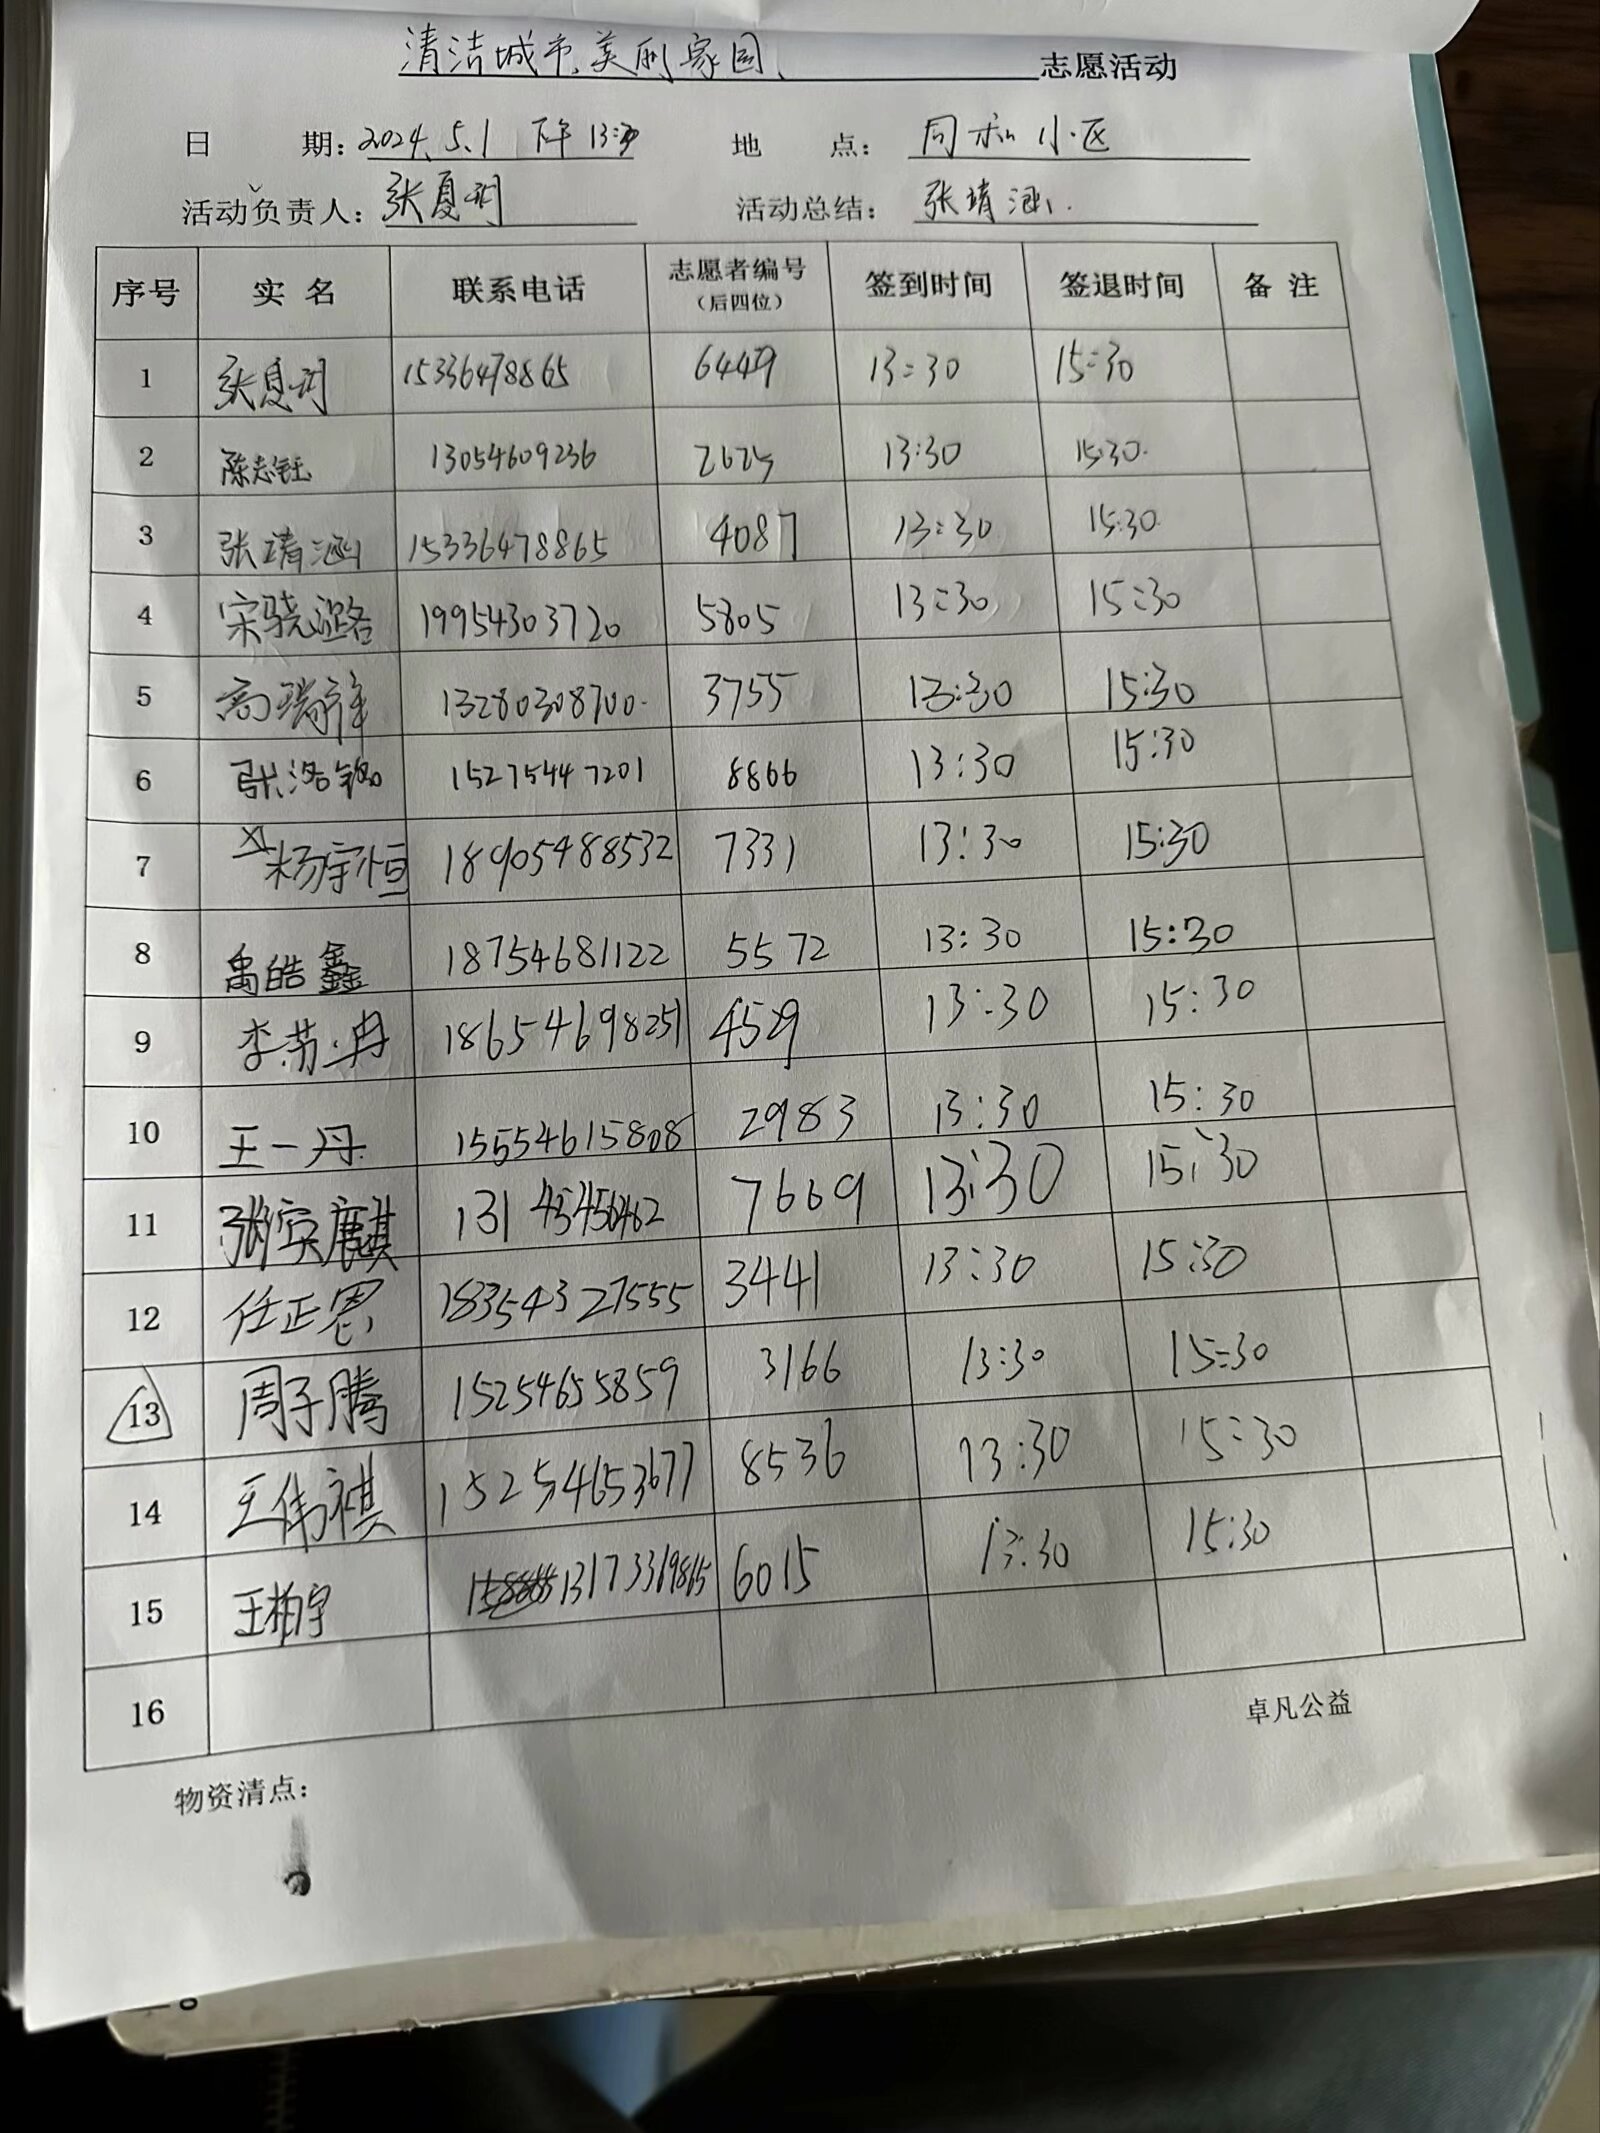 清洁城市、美丽家园、志愿活动
日 期：2024.5.1 下午 13:30 地 点：同和小区
活动负责人：张夏溪 活动总结：张靖涵.
序号 实 名 联系电话 志愿者编号（后四位） 签到时间 签退时间 备 注
1 张夏 15336478865 6449 13:30 15:30
2 陈志钰 13054609236 2625 13:30 15:30.
3 张靖涵 15336478865 4087 13:30 15:30.
4 宋骁潞 19954303720 5805 13:30 15:30
5 高瑞祥 13280308700. 3755 13:30 15:30
6 张洺铭 15275447201 8866 13:30 15:30
7 杨宇恒 18905488532 7331 13:30 15:30
8 禹皓鑫 18754681122 5572 13:30 15:30
9 李苏冉 18654698251 4529 13:30 15:30
10 王一丹 15554615808 2983 13:30 15:30
11 张宾麒 131 7669 13:30 15:30
12 任正恩 18354327555 3441 13:30 15:30
13 周子腾 15254655859 3166 13:30 15:30
14 王伟祺 15254653677 8536 13:30 15:30
15 王柏宇 13173319865 6015 13:30 15:30
16
卓凡公益
物资清点：